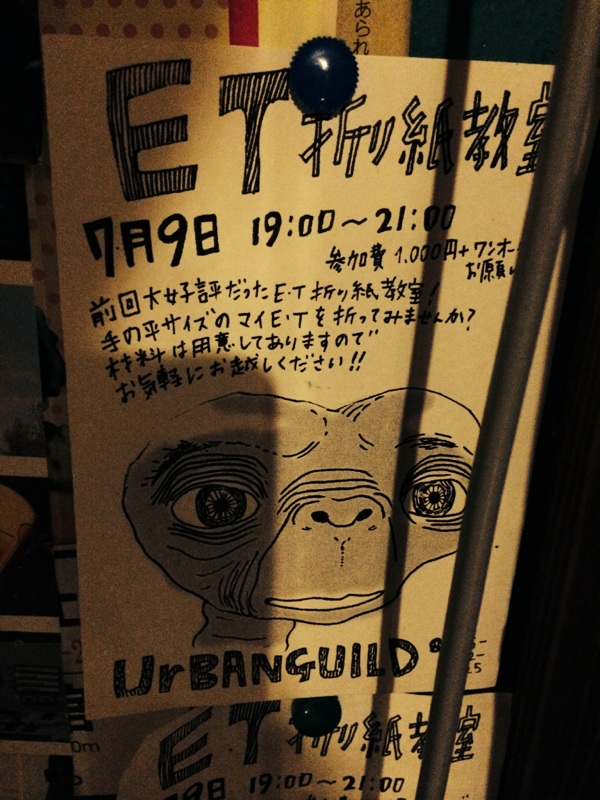 あられ
ET折り紙教室
7月9日 19:00〜21:00
参加費 1,000円+ワンオー
お願い
前回大好評だったE・T折り紙教室!
手の平サイズのマイE・Tを折ってみませんか?
材料は用意してありますので
お気軽にお越しください!!
UrBANGUILD
ET折り紙教室
9日 19:00〜21:00
0m